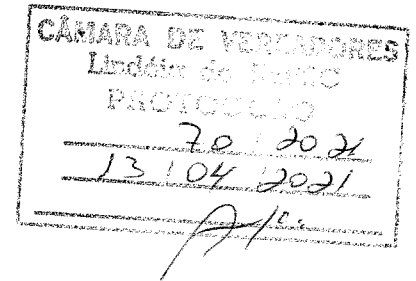 CÂMARA DE VEREADORES
Lindóia do Sul/SC
PROTOCOLO
70 / 2021
13 / 04 / 2021